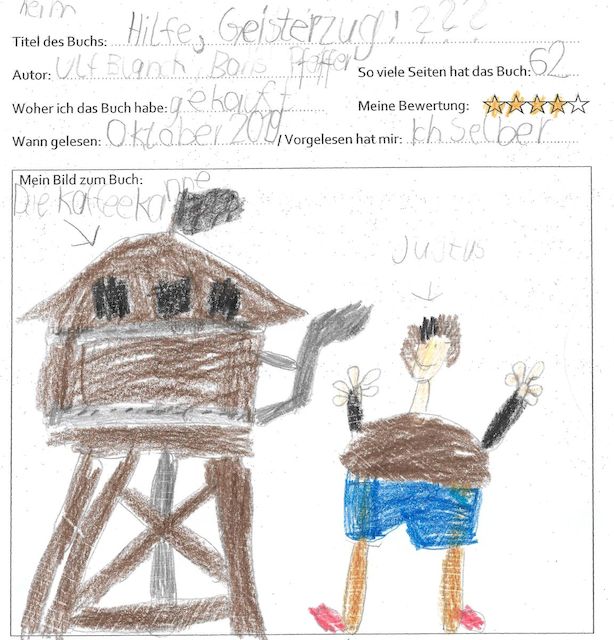 heim
Titel des Buchs: Hilfe, Geisterzug! ???
Autor: Ulf Blanck, Boris Pfeiffer So viele Seiten hat das Buch: 62
Woher ich das Buch habe: gekauft Meine Bewertung:
Wann gelesen: Oktober 2019 / Vorgelesen hat mir: Ich selber
Mein Bild zum Buch:
Die Kaffeekanne
Justus